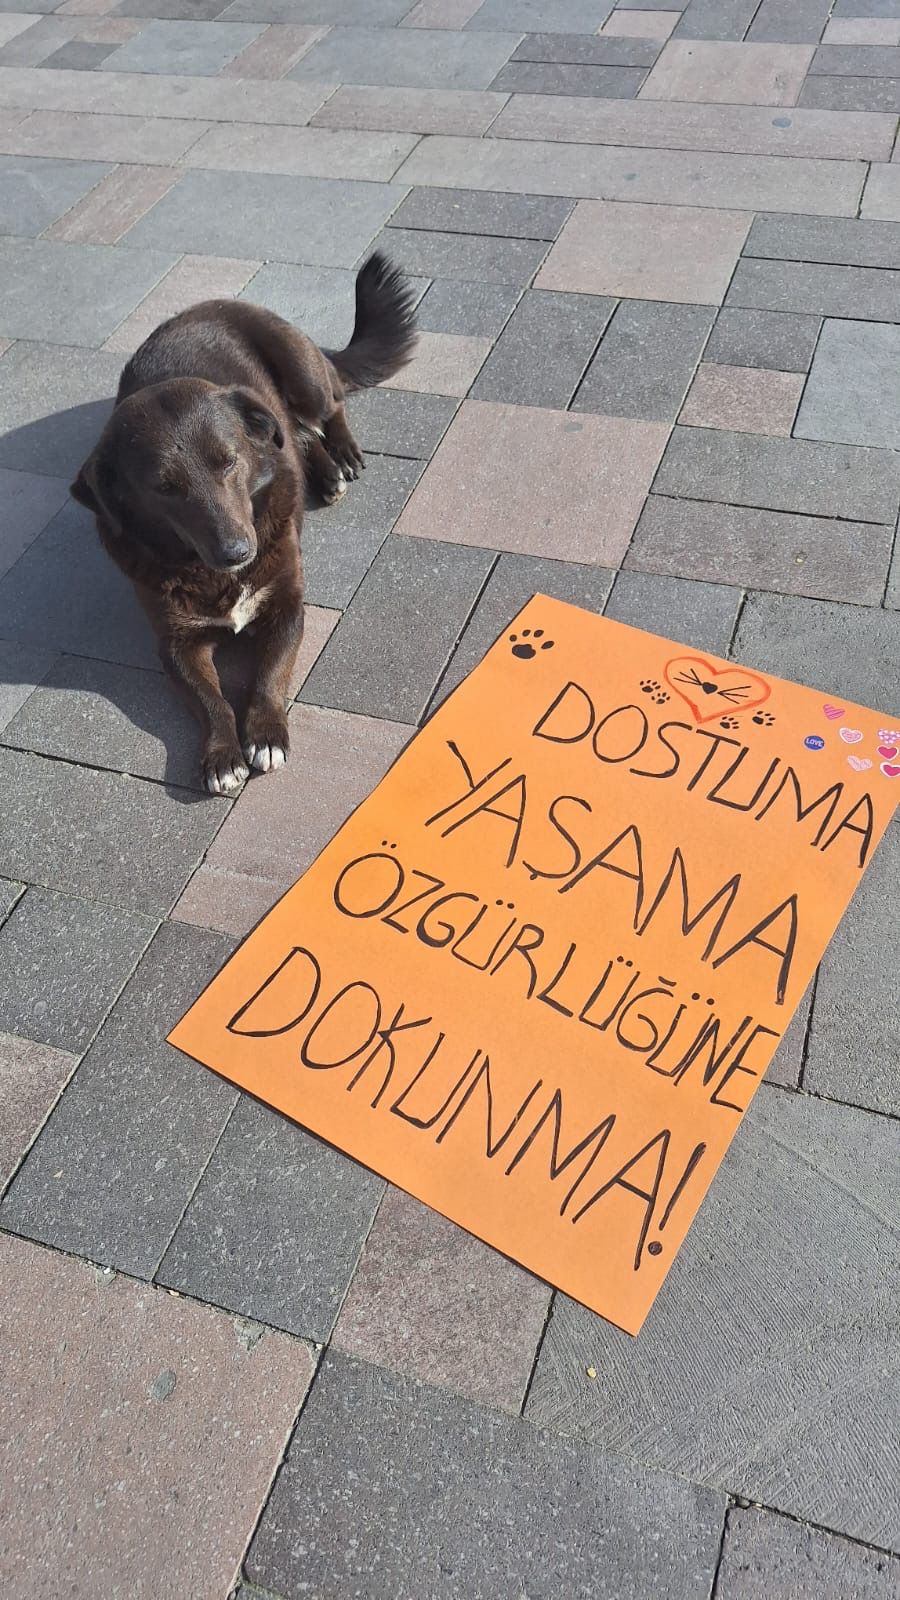 DOSTUMA
YAŞAMA
ÖZGÜRLÜĞÜNE
DOKUNMA!
LOVE